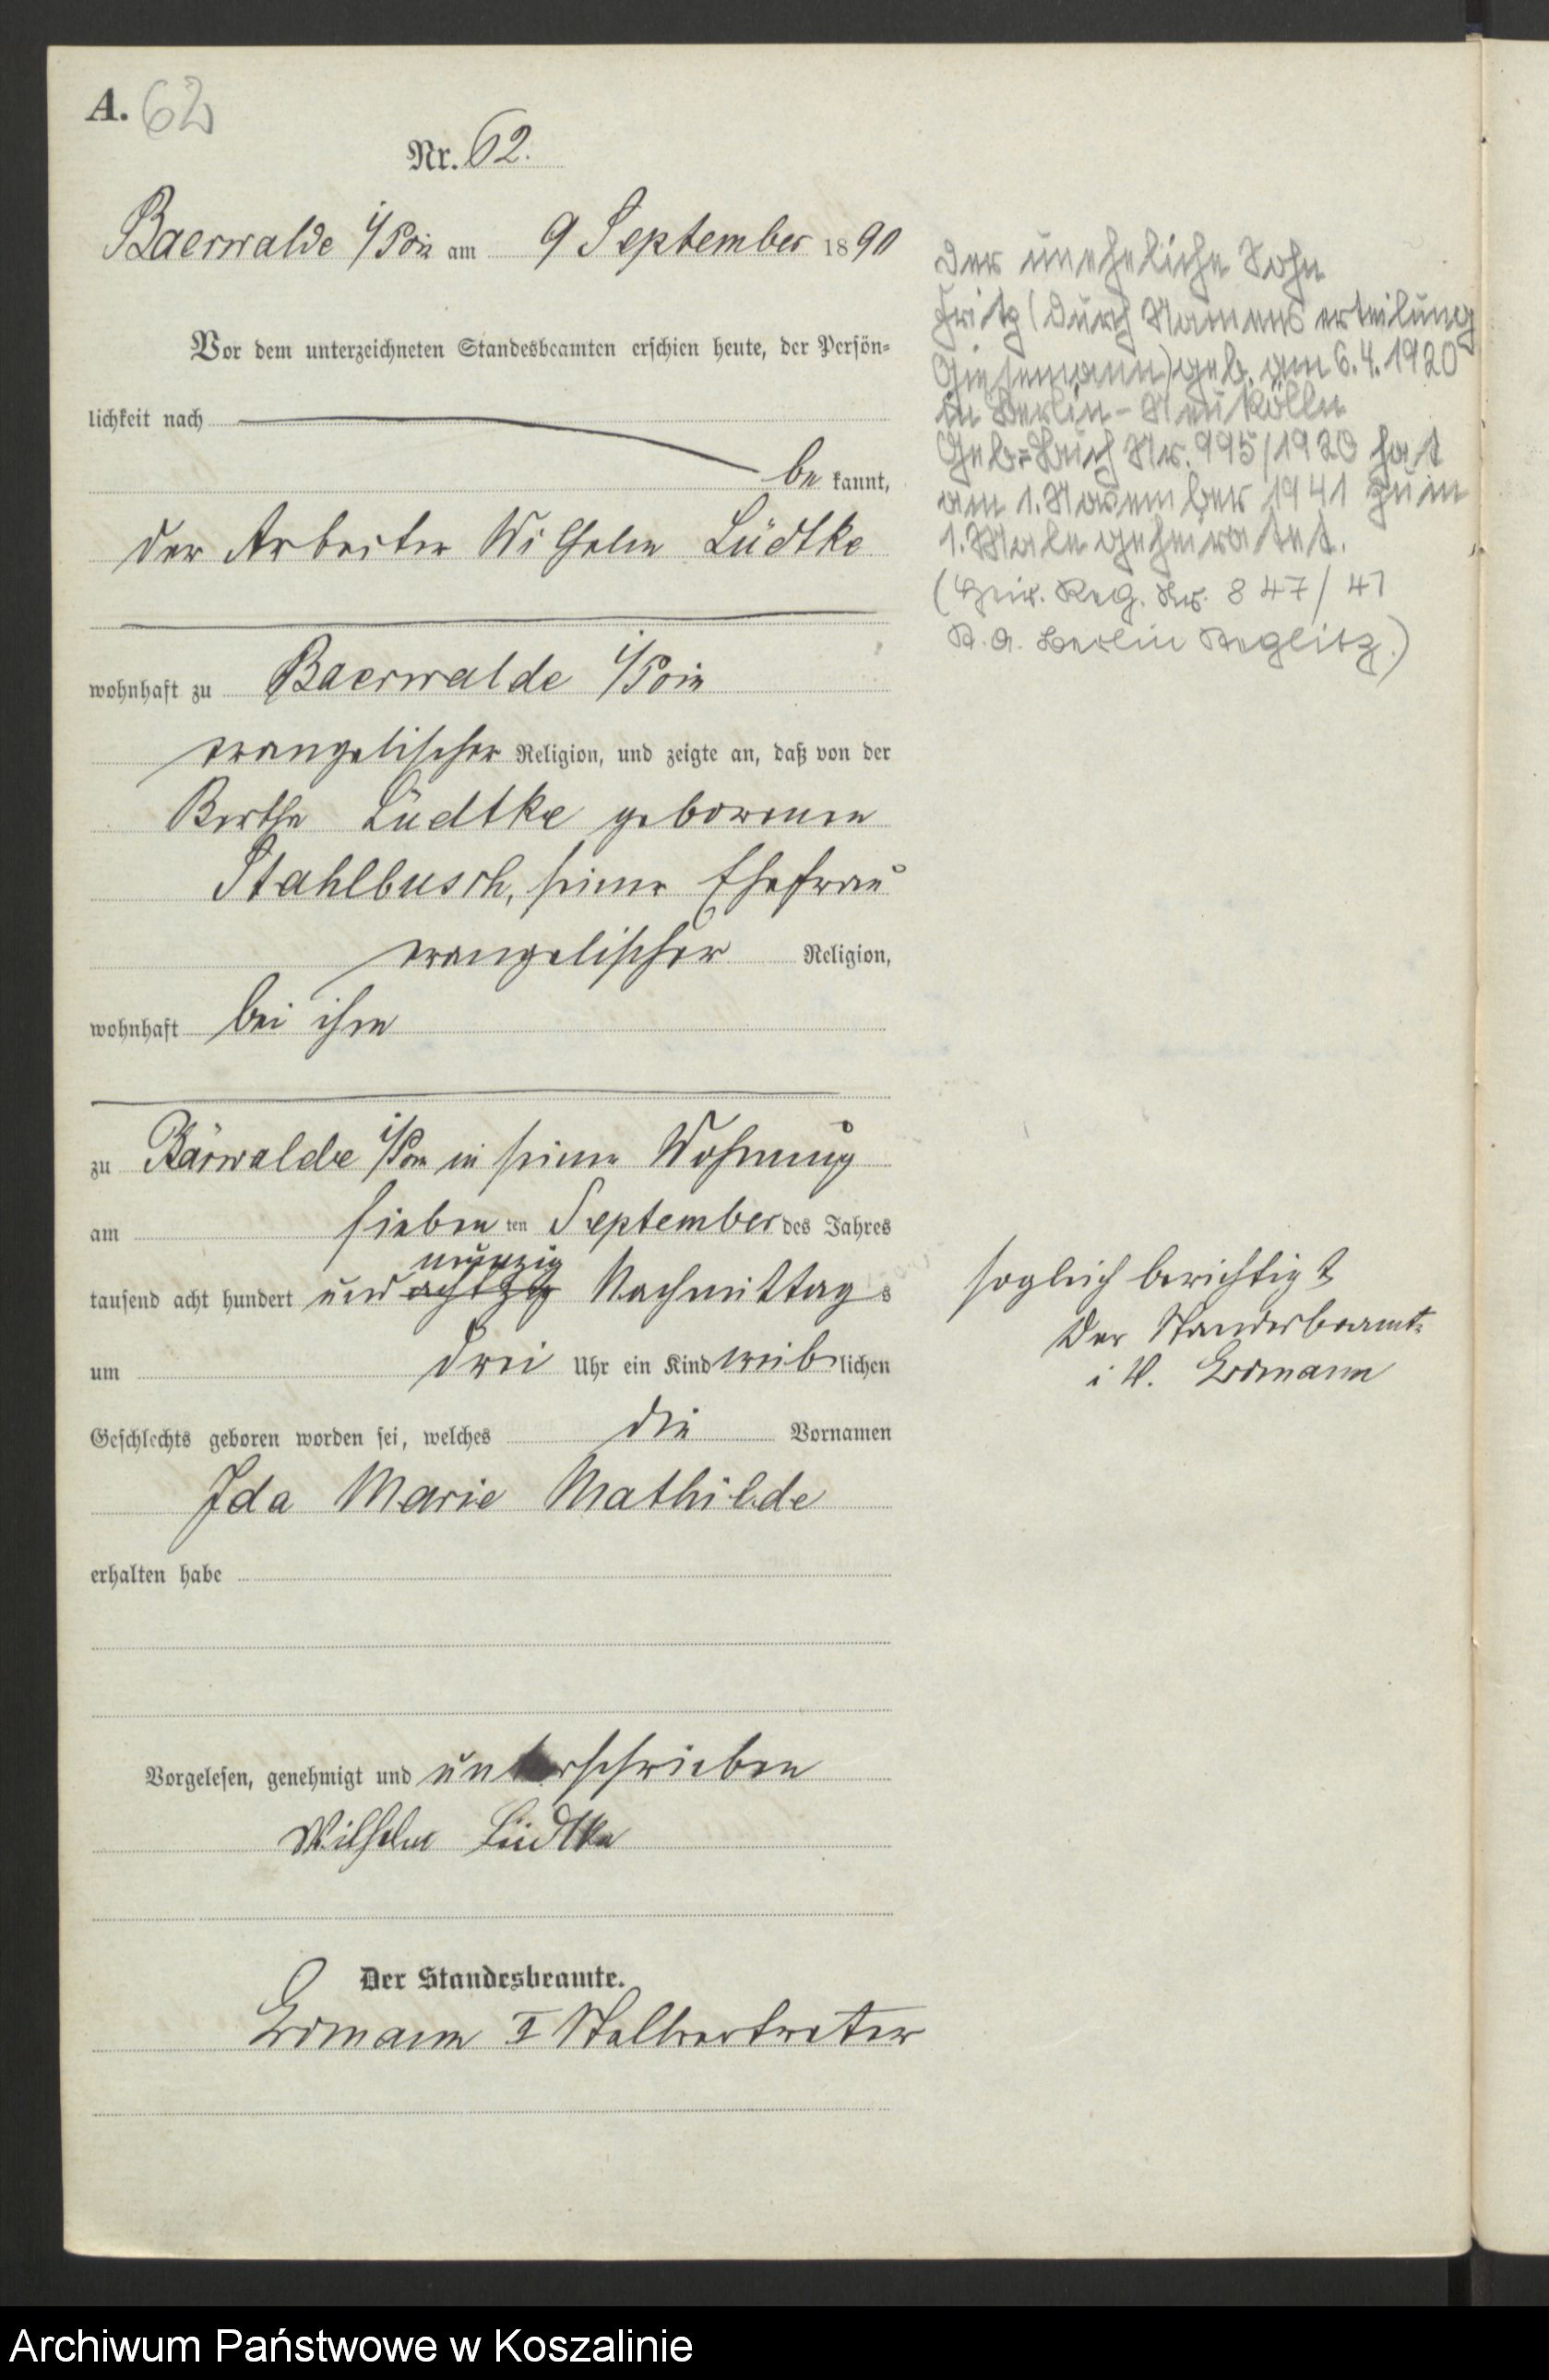 A. 62
Nr. 62.
Baerwalde i/Pom am 9 September 1890
Vor dem unterzeichneten Standesbeamten erschien heute, der Persön-
lichkeit nach
be kannt,
der Arbeiter Wilhelm Lüdtke
wohnhaft zu Baerwalde i/Pom
evangelischer Religion, und zeigte an, daß von der
Bertha Lüdtke geborenen
Stahlbusch, seiner Ehefrau
evangelischer Religion,
wohnhaft bei ihm
zu Bärwalde i/Pom in seiner Wohnung
am sieben ten September des Jahres
neunzig
tausend acht hundert und achtzig Nachmittags
um drei Uhr ein Kind weiblichen
Geschlechts geboren worden sei, welches die Vornamen
Ida Marie Mathilde
erhalten habe
Vorgelesen, genehmigt und unterschrieben
Wilhelm Lüdtke
Der Standesbeamte.
Erdmann II Stellvertreter
Der uneheliche Sohn
Fritz (durch Namenserteilung
Giesemann) geb. am 6.4.1920
in Berlin-Neukölln
Geb=Buch Nr. 995/1920 hat
am 1. November 1941 zum
1. Male geheiratet.
(Heir. Reg. Nr. 847/41
St. A. Berlin Steglitz.)
sogleich berichtigt
Der Standesbeamte
i V. Erdmann
Archiwum Państwowe w Koszalinie